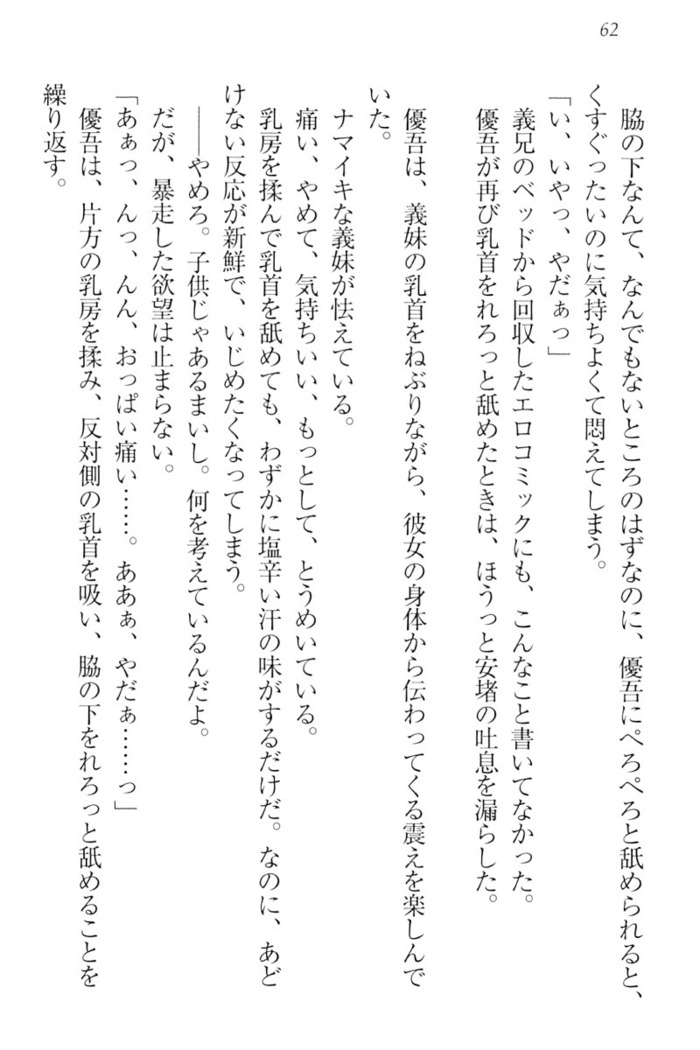 62
脇の下なんて、なんでもないところのはずなのに、優吾にぺろぺろと舐められると、
くすぐったいのに気持ちよくて悶えてしまう。
「い、いやっ、やだぁっ」
義兄のベッドから回収したエロコミックにも、こんなこと書いてなかった。
優吾が再び乳首をれろっと舐めたときは、ほうっと安堵の吐息を漏らした。
優吾は、義妹の乳首をねぶりながら、彼女の身体から伝わってくる震えを楽しんで
いた。
ナマイキな義妹が怯えている。
痛い、やめて、気持ちいい、もっとして、とうめいている。
乳房を揉んで乳首を舐めても、わずかに塩辛い汗の味がするだけだ。なのに、あど
けない反応が新鮮で、いじめたくなってしまう。
――やめろ。子供じゃあるまいし。何を考えているんだよ。
だが、暴走した欲望は止まらない。
「あぁっ、んっ、んん、おっぱい痛い……。ああぁ、やだぁ……っ」
優吾は、片方の乳房を揉み、反対側の乳首を吸い、脇の下をれろっと舐めることを
繰り返す。